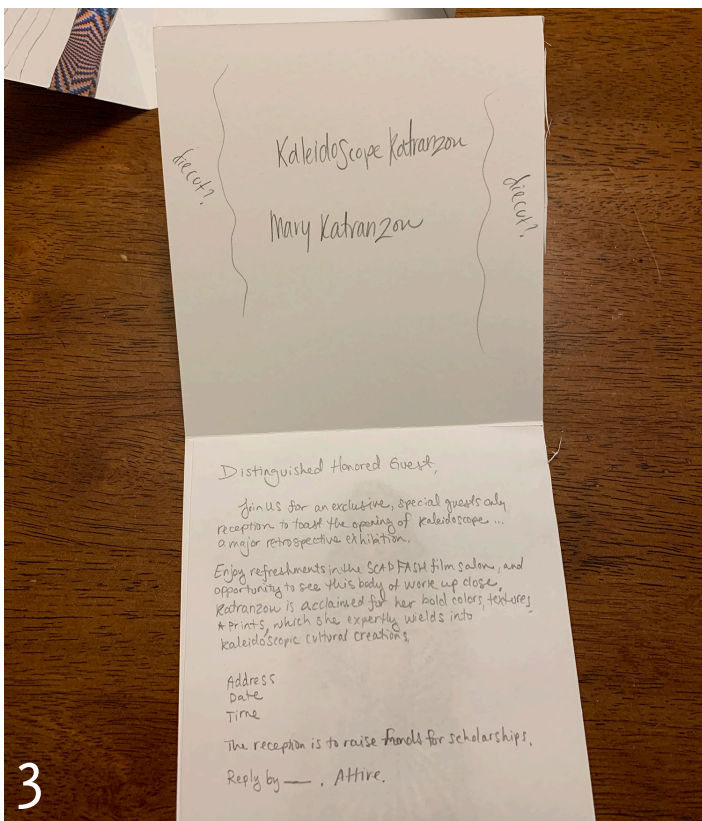 Kaleidoscope Katranzou
diecut?
diecut?
Mary Katranzou
Distinguished Honored Guest,
Join us for an exclusive, special guests only
reception to toast the opening of Kaleidoscope ...
a major retrospective exhibition.
Enjoy refreshments in the SCAD FASH film salon, and
opportunity to see this body of work up close.
Katranzou is acclaimed for her bold colors, textures,
+ prints, which she expertly wields into
kaleidoscopic cultural creations.
Address
Date
Time
The reception is to raise funds for scholarships.
Reply by —. Attire.
3